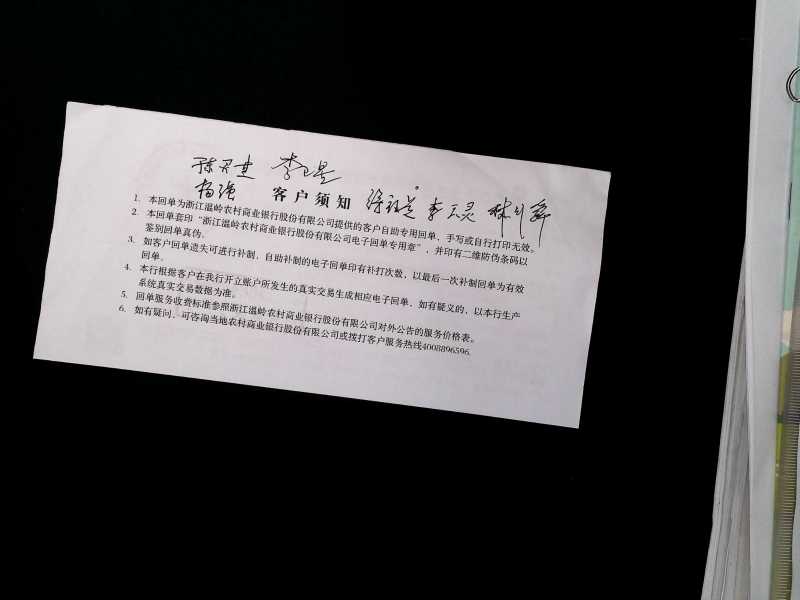 杨强
客户须知
1. 本回单为浙江温岭农村商业银行股份有限公司提供的客户自助专用回单、手写或自行打印无效。
2. 本回单套印“浙江温岭农村商业银行股份有限公司电子回单专用章”，并印有二维防伪条码以
鉴别回单真伪.
3. 如客户回单遗失可进行补制，自助补制的电子回单印有补打次数，以最后一次补制回单为有效
回单.
4. 本行根据客户在我行开立账户所发生的真实交易生成相应电子回单，如有疑义的，以本行生产
系统真实交易数据为准。
5. 回单服务收费标准参照浙江温岭农村商业银行股份有限公司对外公告的服务价格表。
6. 如有疑问，可咨询当地农村商业银行股份有限公司或拨打客户服务热线4008896596.